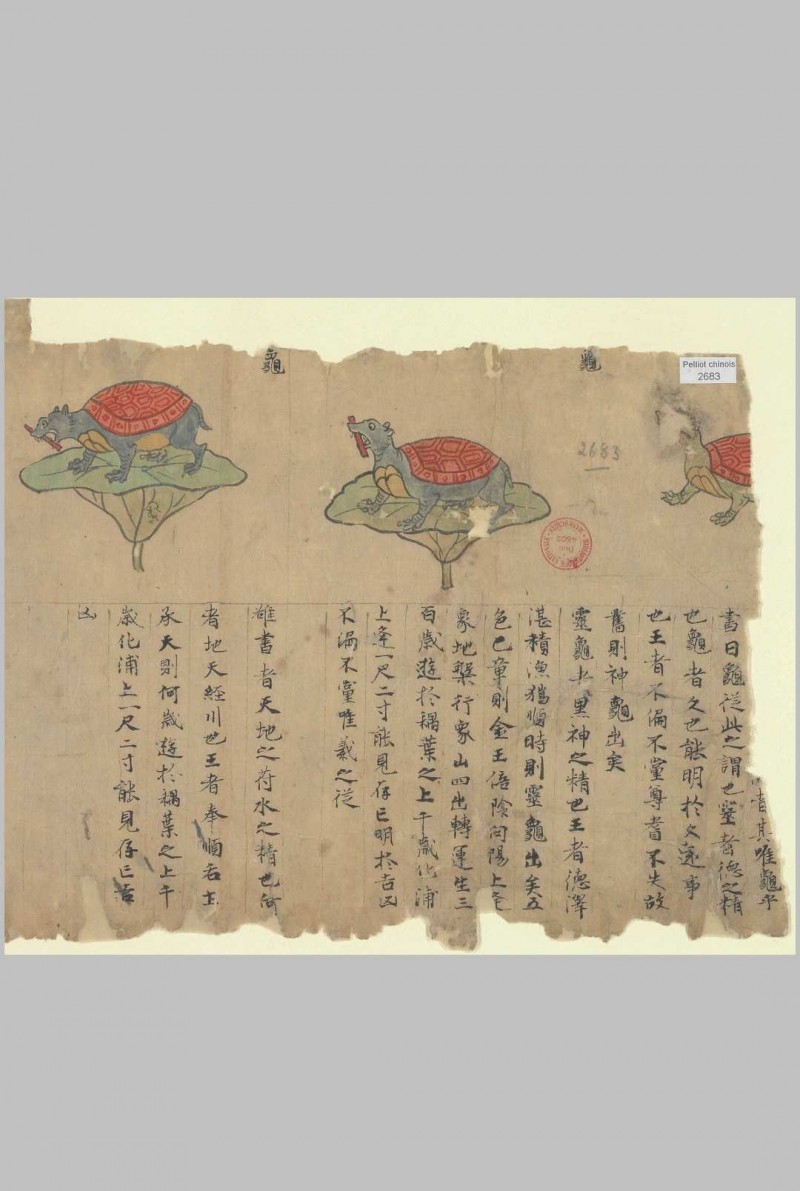 者其唯龜乎
書曰龜從此之謂也靈者德之精
也龜者久也能明於久遠事
也王者不偏不黨尊耆不失故
舊則神龜出矣
靈龜者黑神之精也王者德澤
湛積漁獵順時則靈龜出矣五
色已章則金玉倍陰向陽上
象地槃行象山四出轉運生三
百歲遊於藕葉之上千歲化浦
上逢一尺二寸能見存亡明於吉凶
不漏不黨唯義之從
雒書者天地之符水之精也何
者地天経川也王者奉順后土
承天則何歲遊於耦葉之上千
歲化浦上一尺二寸能見存亡吉
凶
龜
龜
Pelliot chinois
2683
2683